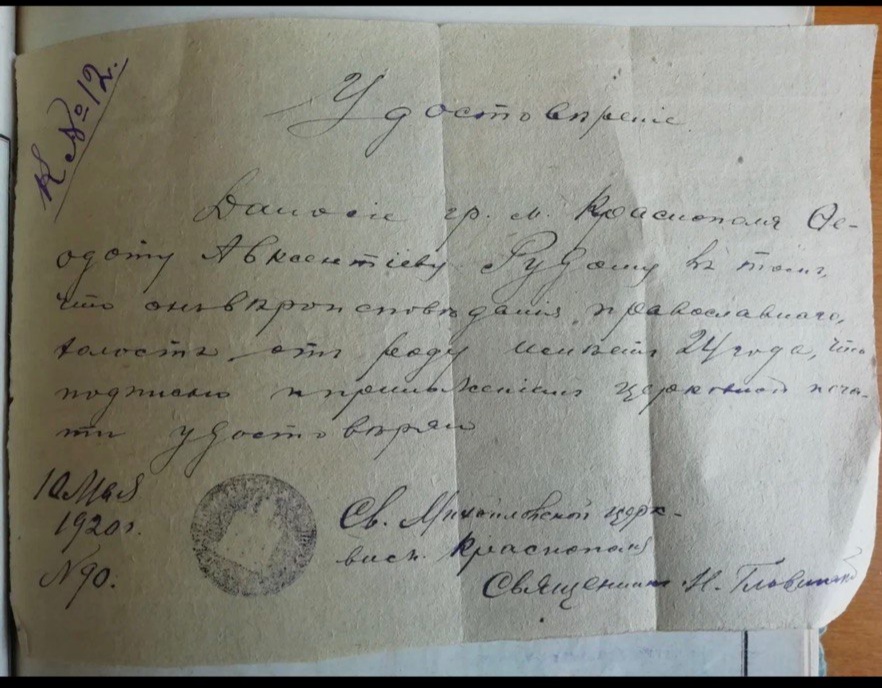 К №12.
Удостовѣреніе
Дано сіе гр. м. Краснополя Ѳе-
одоту Авксентіеву Рудому въ томъ,
что онъ вѣроисповѣданія православнаго,
холостъ, отъ роду имѣетъ 24 года, что
подписью и приложеніемъ церковной печа-
ти удостовѣряю
10 Мая
1920 г.
№ 90.
Св. Михайловской церк-
ви м. Краснополя
Священникъ Н.